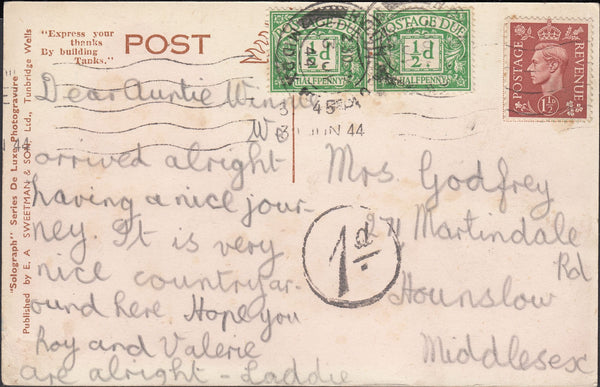 "Express your
thanks
By building
Tanks."
POST
"Solograph" Series De Luxe Photogravure
Published by E. A. SWEETMAN & SON, Ltd., Tunbridge Wells
POSTAGE DUE
½d
HALFPENNY
POSTAGE DUE
½d
HALFPENNY
POSTAGE
REVENUE
1½D
3 45
JUN 44
44
1d
Dear Auntie Winnie
We
arrived alright
having a nice jour-
ney. It is very
nice country ar-
ound here Hope you
Roy and Valerie
are alright - Laddie
Mrs Godfrey
Martindale
Rd
Hounslow
Middlesex